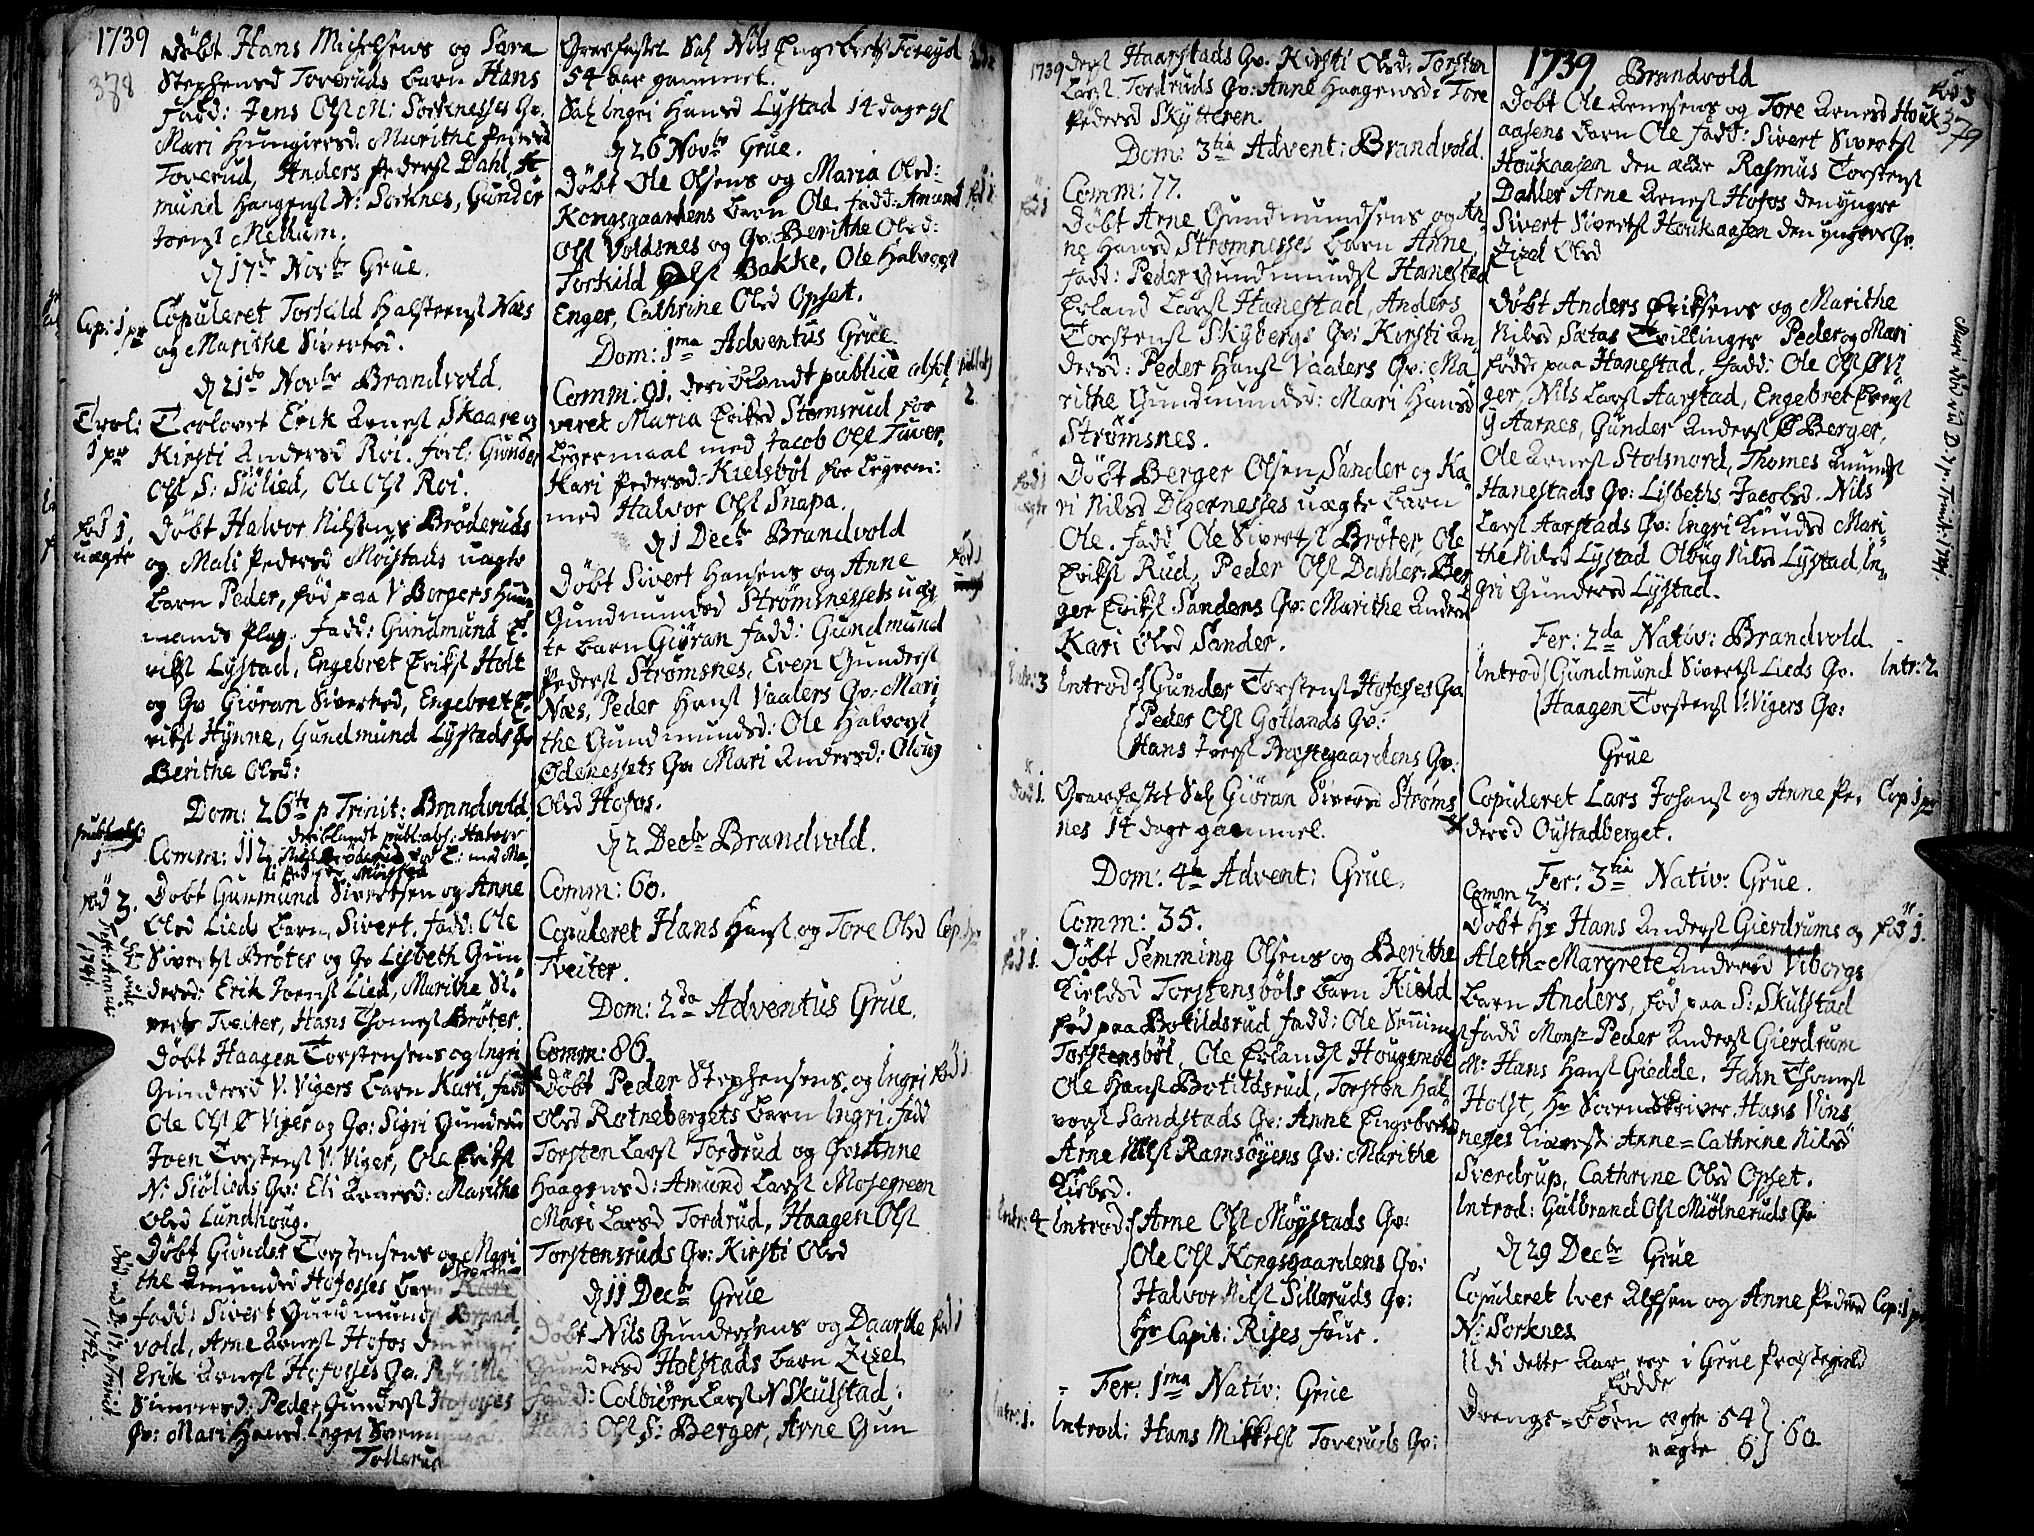 1739
378
Døbt Hans Michelsens og Sara
Stephensd Toveruds barn Hans
Fadd: Jens Olsl N: Sorknesses Gv.
Mari Hungiersd. Marithe Pedersd
Toverud, Anders Pedersl Dahl, A-
mund Haagensl N: Sorknes, Gunder
Joensl Mellum.
D 17de Novbr Grue.
Cop: 1 pr
Copuleret Torkild Halstensl Næs
og Marithe Sivertsd.
D 21de Novbr Brandvold.
Trol:
1 pr
Trolovet Erik Arnesl Skaare og
Kirsti Andersd Roi. forl: Gunder
Olsl S: Siølied, Ole Olsl Roi.
fød 1.
uægte
Døbt Halvor Nilsens Brøderuds
og Mali Pedersd Moistads uægte
barn Peder, fød paa V Bergers Huus
mands Plag. Fadd: Gundmund E-
riksl Lystad, Engebret Eriksl Holt
og Gv Giøran Sivertsd, Engebret E-
riksl Hynne, Gundmund Lystads Gv
Berithe Olsd:
Dom: 26te p Trinit: Brandvold.
publ: abs:
1
Comm: 112, deriblandt publ: abs: Halvor
Nils. Brøderud for L: med Ma-
li Pedersd Moistad
fød 3.
Døbt Gunmund Sivertsen og Anne
Olsd Lieds barn, Sivert. Fadd: Ole
Sivertsl Brøter og Gv Lisbeth Gun-
dersd: Erik Joensl Lied, Marithe Si-
verts Tveiter, Hans Thomesl Brøter.
Døbt Haagen Torstensens og Ingri
Gundersd V. Vigers barn Kari, fadd
Ole Olsl Ø Viger og Gv: Sigri Gundersd
Joen Torstensl V: Viger, Ole Eriksl
N: Siølieds Gv: Eli Arnesd: Marithe
Olsd Lundhoug.
Døbt Gunder Torstensens og Mari-
the Amundsd Hofosses barn
fadd: Sivert Gundmunds Brand-
vold, Arne Arnesl Hofos den
Erik Arnesl Hofosses Gv.
Simensd: Peder Gundersl Hofosses
Gv: Mari Hansd. Ingri
Tollerud
Gravfæstet Sal Nils Engebretsl
54 Aar gammel.
Sal Ingri Hansd Lystad 14 dage gl
D 26 Novbr Grue.
Døbt Ole Olsens og Maria Olsd:
Kongsgaardens barn Ole. fadd: Amund
fød 1
Olsl Voldsnes og Gv: Berithe Olsd:
Torkild Olsl Bakke, Ole Halvorsl
Enger, Cathrine Olsd Opset.
Dom: 1ma Adventus Grue
Comm: 91. deriblandt publice absol-
2
veret Maria Eriksd Stomsrud for
Leyermaal med Jacob Olsl Tuver.
Kari Pedersd: Kielsbøl for Leyerm:
med Halvor Olsl Snapa.
D 1 Decbr Brandvold
Døbt Sivert Hansens og Anne
fød 1
Gundmundsd Strømnessets uæg-
te barn Giøran fadd: Gundmund
Pedersl Strømsnes, Even Gundersl
Næs, Peder Hansl Vaalers Gv: Mari-
the Gundmundsd: Ole Halvorsl
Ødenessets Gv Mari Andersd: Oloug
Olsd Hofos.
D 2 Decbr Brandvold.
Comm: 60.
Copuleret Hans Hansl og Tore Olsd
Cop. 1 pr
Tveiter.
Dom: 2da Adventus Grue.
Comm: 86.
Døbt Peder Stephensens og Ingri
fød 1
Olsd Rotnebergets barn Ingri, fadd
Torsten Larsl Tordrud og Gv: Anne
Haagensd: Amund Larsl Mosegreen
Mari Larsd Tordrud, Haagen Olsl
Torstensruds Gv: Kirsti Olsd
D 11 Decbr Grue
Døbt Nils Gundersens og Daarthe
fød 1
Gundersd Holstads barn Zizel
fadd: Colbiørn Larsl N Skulstad.
Hans Olsl S: Berger, Arne Gun
1739
dersl Haarstads Gv. Kirsti Olsd: Torsten
Larsl. Tordruds Gv: Anne Haagensd: Tore
Pedersd Skytteren.
Dom: 3tia Advent: Brandvold.
Comm: 77.
fød 1
Døbt Arne Gundmundsens og An-
ne Hansd Strømnesses barn Anne
fadd: Peder Gundmundsl Hanestad
Erland Larsl Hanestad, Anders
Torstensl Skybergs Gv: Kirsti An-
dersd: Peder Hansl Vaalers Gv: Ma-
rithe Gundmundsd: Mari Hansd
Strømsnes.
fød 1
uægte
Døbt Berger Olsen Sander og Ka-
ri Nilsd Digernesses uægte barn
Ole. fadd Ole Sivertsl Brøter, Ole
Eriksl Rud, Peder Olsl Dahler, Ber-
ger Eriksl Sanders Gv: Marithe Andersd
Kari Olsd Sander.
Intr: 3
Introd: Gunder Torstensl Hofosses Gv
Peder Olsl Gotlands Gv:
Hans Iversl Præstegaardens Gv.
død 1.
Gravfæstet Sal Giøran Siversd Strøms
nes 14 dage gammel.
Dom: 4ta Advent: Grue.
Comm: 35.
fød 1.
Døbt Semming Olsens og Berithe
Kieldsd Torstensbøls barn Kield
fød paa Botildsrud fadd: Ole Semmingsl
Torstensbøl, Ole Erlandsl Hougsmoe
Ole Hansl Botildsrud, Torsten Hal-
vorsl Sandstads Gv: Anne Engebretsd
Arne Nilsl Ramsøyens Gv: Marithe
Intr: 4
Introd: Arne Olsl Moystads Gv:
Ole Olsl Kongsgaardens Gv:
Halvor Nilsl Silleruds Gv:
Hr Capit: Rises frue.
Fer: 1ma Nativ: Grue
Intr: 1.
Introd: Hans Mikkelsl Toveruds Gv:
1739
Brandvold
fød 3
379
Døbt Ole Arnesens og Tore Arnesd Houk-
aasens barn Ole fadd: Sivert Sivertsl
Houkaasen den ældre Rasmus Torstensl
Dahler Arne Arnesl Hofos den yngre
Sivert Sivertsl Houkaasen den yngres Gv.
Zizel Olsd
Døbt Anders Eriksens og Marithe
Nilsd Satas Tvillinger Peder og Mari
fødde paa Hanestad, fadd: Ole Olsl Ø Vi-
ger, Nils Larsl Aarstad, Engebret Eversl
Y Aarnes, Gunder Andersl Ø Berger,
Ole Arnesl Stolsnord, Thomes Amundsl
Hanestads Gv: Lisbeths Jacobsd. Nils
Larsl Aarstads Gv: Ingri Knudsd Mari-
the Nilsd Lystad Oloug Nilsd Lystad, In-
gri Gundersd Lystad.
Fer: 2da Nativ: Brandvold.
Introd Gundmund Sivertsl Lieds Gv.
Intr: 2
Haagen Torstensl V: Vigers Gv:
Grue
Copuleret Lars Johansl og Anne Pe-
Cop 1 pr
dersd Oustadberget.
Fer: 3tia Nativ: Grue.
Comm 2.
Døbt Hr Hans Andersl Gierdrums og
fød 1.
Aleth-Margrete Andersd Viborgs
barn Anders, fød paa S: Skulstad
fadd Monsr Peder Andersl Gierdrum
Mr Hans Hansl Giedde, Jahn Thomesl
Holst, Hr Sorenskriver Hans Vins-
nesses Kiæreste Anne-Cathrine Nilsd
Sverdrup, Cathrine Olsd Opset.
Introd: Gulbrand Olsl Miølneruds Gv
D 29 Decbr Grue
Copuleret Iver Alfsen og Anne Pedersd
Cop: 1 pr
N: Sorknes
Udi dette Aar ere i Grue Præstegield
fødde
Drenge-børn ægte 54
uægte 6
60